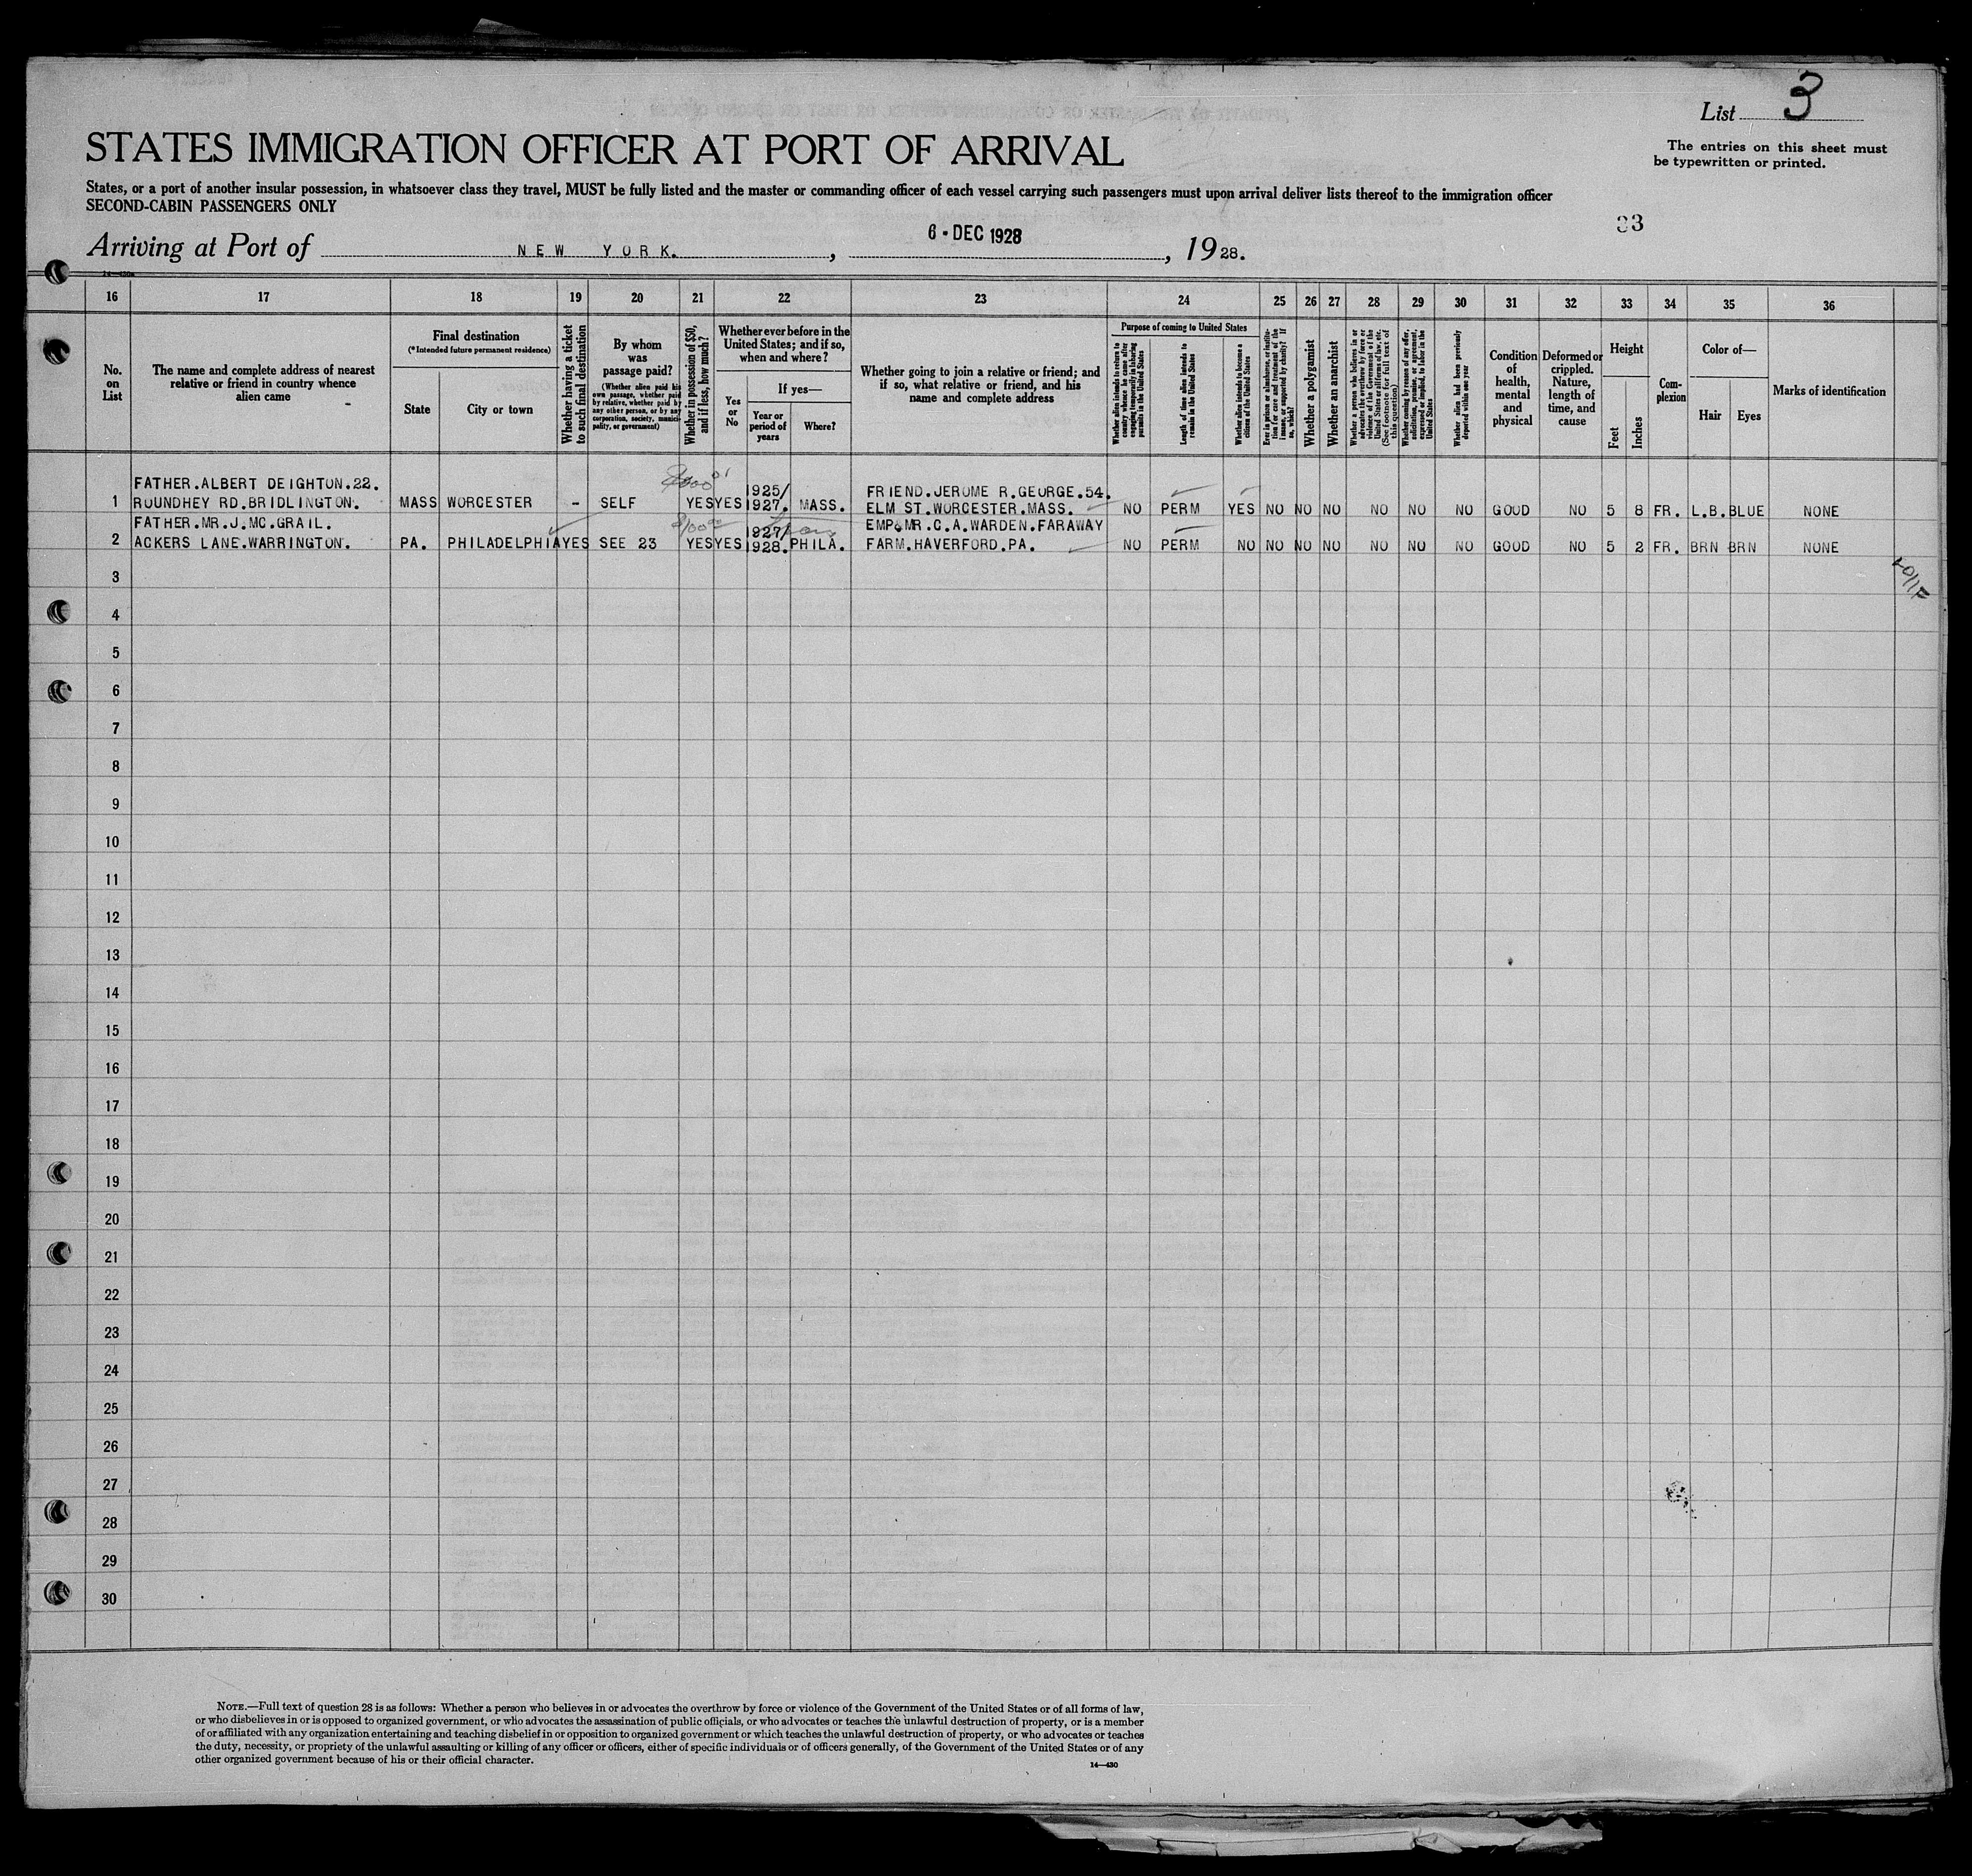 List 3
STATES IMMIGRATION OFFICER AT PORT OF ARRIVAL
The entries on this sheet must
be typewritten or printed.
States, or a port of another insular possession, in whatsoever class they travel, MUST be fully listed and the master or commanding officer of each vessel carrying such passengers must upon arrival deliver lists thereof to the immigration officer
SECOND-CABIN PASSENGERS ONLY
33
Arriving at Port of NEW YORK. , 6 - DEC 1928 , 1928.
14—430a
16 17 18 19 20 21 22 23 24 25 26 27 28 29 30 31 32 33 34 35 36
No.
on
List
The name and complete address of nearest
relative or friend in country whence
alien came
Final destination
(*Intended future permanent residence)
State
City or town
Whether having a ticket
to such final destination
By whom
was
passage paid?
(Whether alien paid his
own passage, whether paid
by relative, whether paid by
any other person, or by any
corporation, society, munici-
pality, or government)
Whether in possession of $50,
and if less, how much?
Whether ever before in the
United States; and if so,
when and where?
Yes
or
No
If yes—
Year or
period of
years
Where?
Whether going to join a relative or friend; and
if so, what relative or friend, and his
name and complete address
Purpose of coming to United States
Whether alien intends to return to
country whence he came after
engaging temporarily in laboring
pursuits in the United States
Length of time alien intends to
remain in the United States
Whether alien intends to become a
citizen of the United States
Ever in prison or almshouse, or institu-
tion for care and treatment of the
insane, or supported by charity? If
so, which?
Whether a polygamist
Whether an anarchist
Whether a person who believes in or
advocates the overthrow by force or
violence of the Government of the
United States or all forms of law, etc.
(See footnote for full text of
this question)
Whether coming by reason of any offer,
solicitation, promise, or agreement,
expressed or implied, to labor in the
United States
Whether alien had been previously
deported within one year
Condition
of
health,
mental
and
physical
Deformed or
crippled.
Nature,
length of
time, and
cause
Height
Feet
Inches
Com-
plexion
Color of—
Hair
Eyes
Marks of identification
FATHER.ALBERT DEIGHTON.22. 1925/ FRIEND.JEROME R.GEORGE.54.
1 ROUNDHEY RD.BRIDLINGTON. MASS WORCESTER - SELF YES YES 1927. MASS. ELM ST.WORCESTER.MASS. NO PERM YES NO NO NO NO NO NO GOOD NO 5 8 FR. L.B. BLUE NONE
FATHER.MR.J.MC.GRAIL. 1927/ EMP.MR.C.A.WARDEN.FARAWAY
2 ACKERS LANE.WARRINGTON. PA. PHILADELPHIA YES SEE 23 YES YES 1928. PHILA. FARM.HAVERFORD.PA. NO PERM NO NO NO NO NO NO NO GOOD NO 5 2 FR. BRN BRN NONE
3
4
5
6
7
8
9
10
11
12
13
14
15
16
17
18
19
20
21
22
23
24
25
26
27
28
29
30
NOTE.—Full text of question 28 is as follows: Whether a person who believes in or advocates the overthrow by force or violence of the Government of the United States or of all forms of law,
or who disbelieves in or is opposed to organized government, or who advocates the assassination of public officials, or who advocates or teaches the unlawful destruction of property, or is a member
of or affiliated with any organization entertaining and teaching disbelief in or opposition to organized government or which teaches the unlawful destruction of property, or who advocates or teaches
the duty, necessity, or propriety of the unlawful assaulting or killing of any officer or officers, either of specific individuals or of officers generally, of the Government of the United States or of any
other organized government because of his or their official character.
14—430